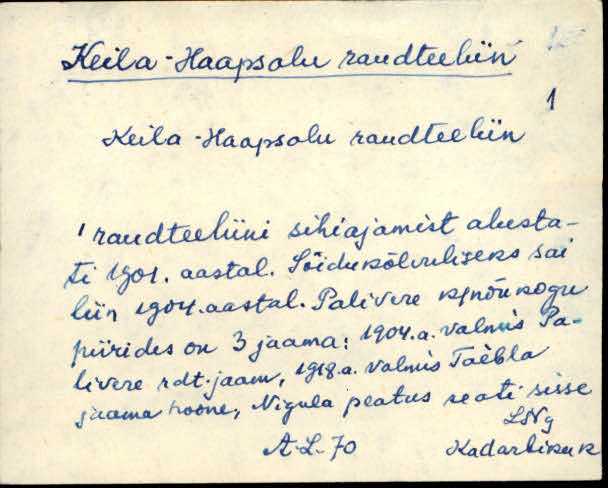 Keila-Haapsalu raudteeliin
1
Keila-Haapsalu raudteeliin
' raudteeliini sihiajamist alusta-
ti 1901. aastal. Sõidukõlvuliseks sai
liin 1904. aastal. Palivere k/nõukogu
piirides on 3 jaama: 1904.a. valmis Pa-
livere rdt. jaam, 1918.a. valmis Taebla
jaama hoone, Nigula peatus seati sisse
LNg
A.L. 70 Kadarbikuk